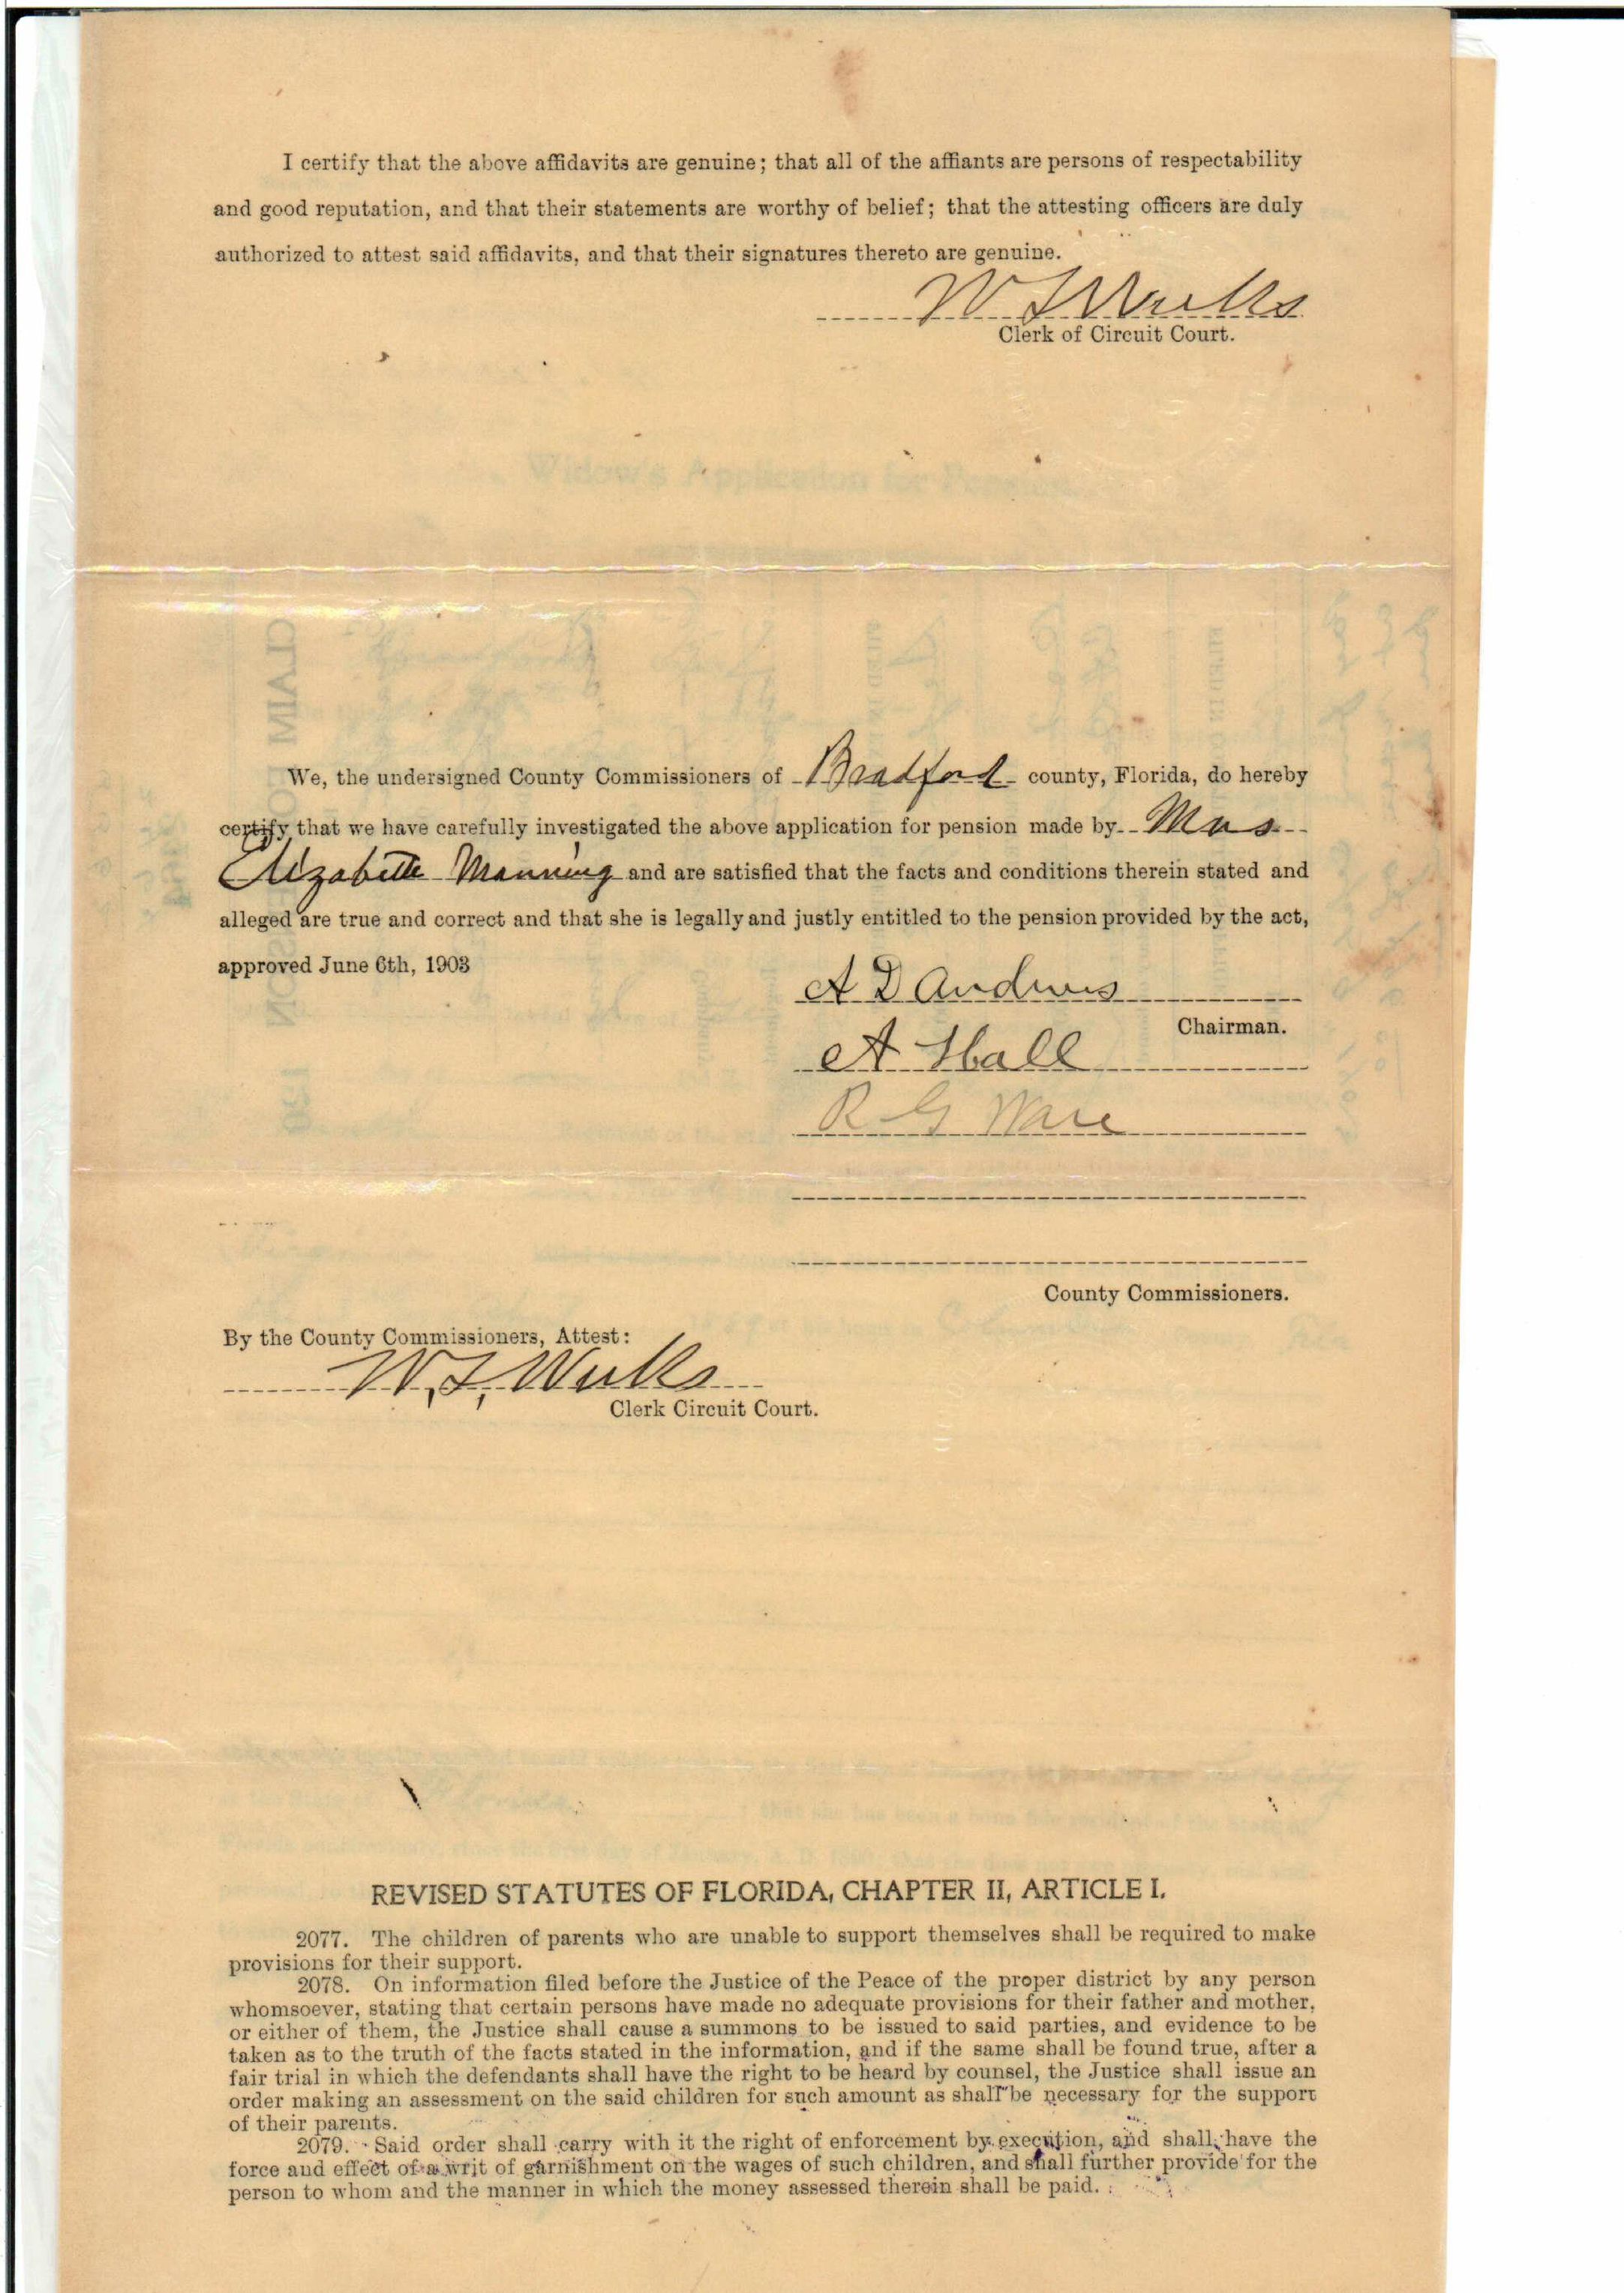 I certify that the above affidavits are genuine; that all of the affiants are persons of respectability
and good reputation, and that their statements are worthy of belief; that the attesting officers are duly
authorized to attest said affidavits, and that their signatures thereto are genuine.
W. I. Weeks
Clerk of Circuit Court.
Widow's Application for Pension.
We, the undersigned County Commissioners of Bradford county, Florida, do hereby
certify that we have carefully investigated the above application for pension made by Mrs
Elizabeth Manning and are satisfied that the facts and conditions therein stated and
alleged are true and correct and that she is legally and justly entitled to the pension provided by the act,
approved June 6th, 1903
A D Andrews
Chairman.
A Hall
R G Ware
County Commissioners.
By the County Commissioners, Attest:
W. I. Weeks
Clerk Circuit Court.
REVISED STATUTES OF FLORIDA, CHAPTER II, ARTICLE I.
2077. The children of parents who are unable to support themselves shall be required to make
provisions for their support.
2078. On information filed before the Justice of the Peace of the proper district by any person
whomsoever, stating that certain persons have made no adequate provisions for their father and mother,
or either of them, the Justice shall cause a summons to be issued to said parties, and evidence to be
taken as to the truth of the facts stated in the information, and if the same shall be found true, after a
fair trial in which the defendants shall have the right to be heard by counsel, the Justice shall issue an
order making an assessment on the said children for such amount as shall be necessary for the support
of their parents.
2079. Said order shall carry with it the right of enforcement by execution, and shall have the
force and effect of a writ of garnishment on the wages of such children, and shall further provide for the
person to whom and the manner in which the money assessed therein shall be paid.